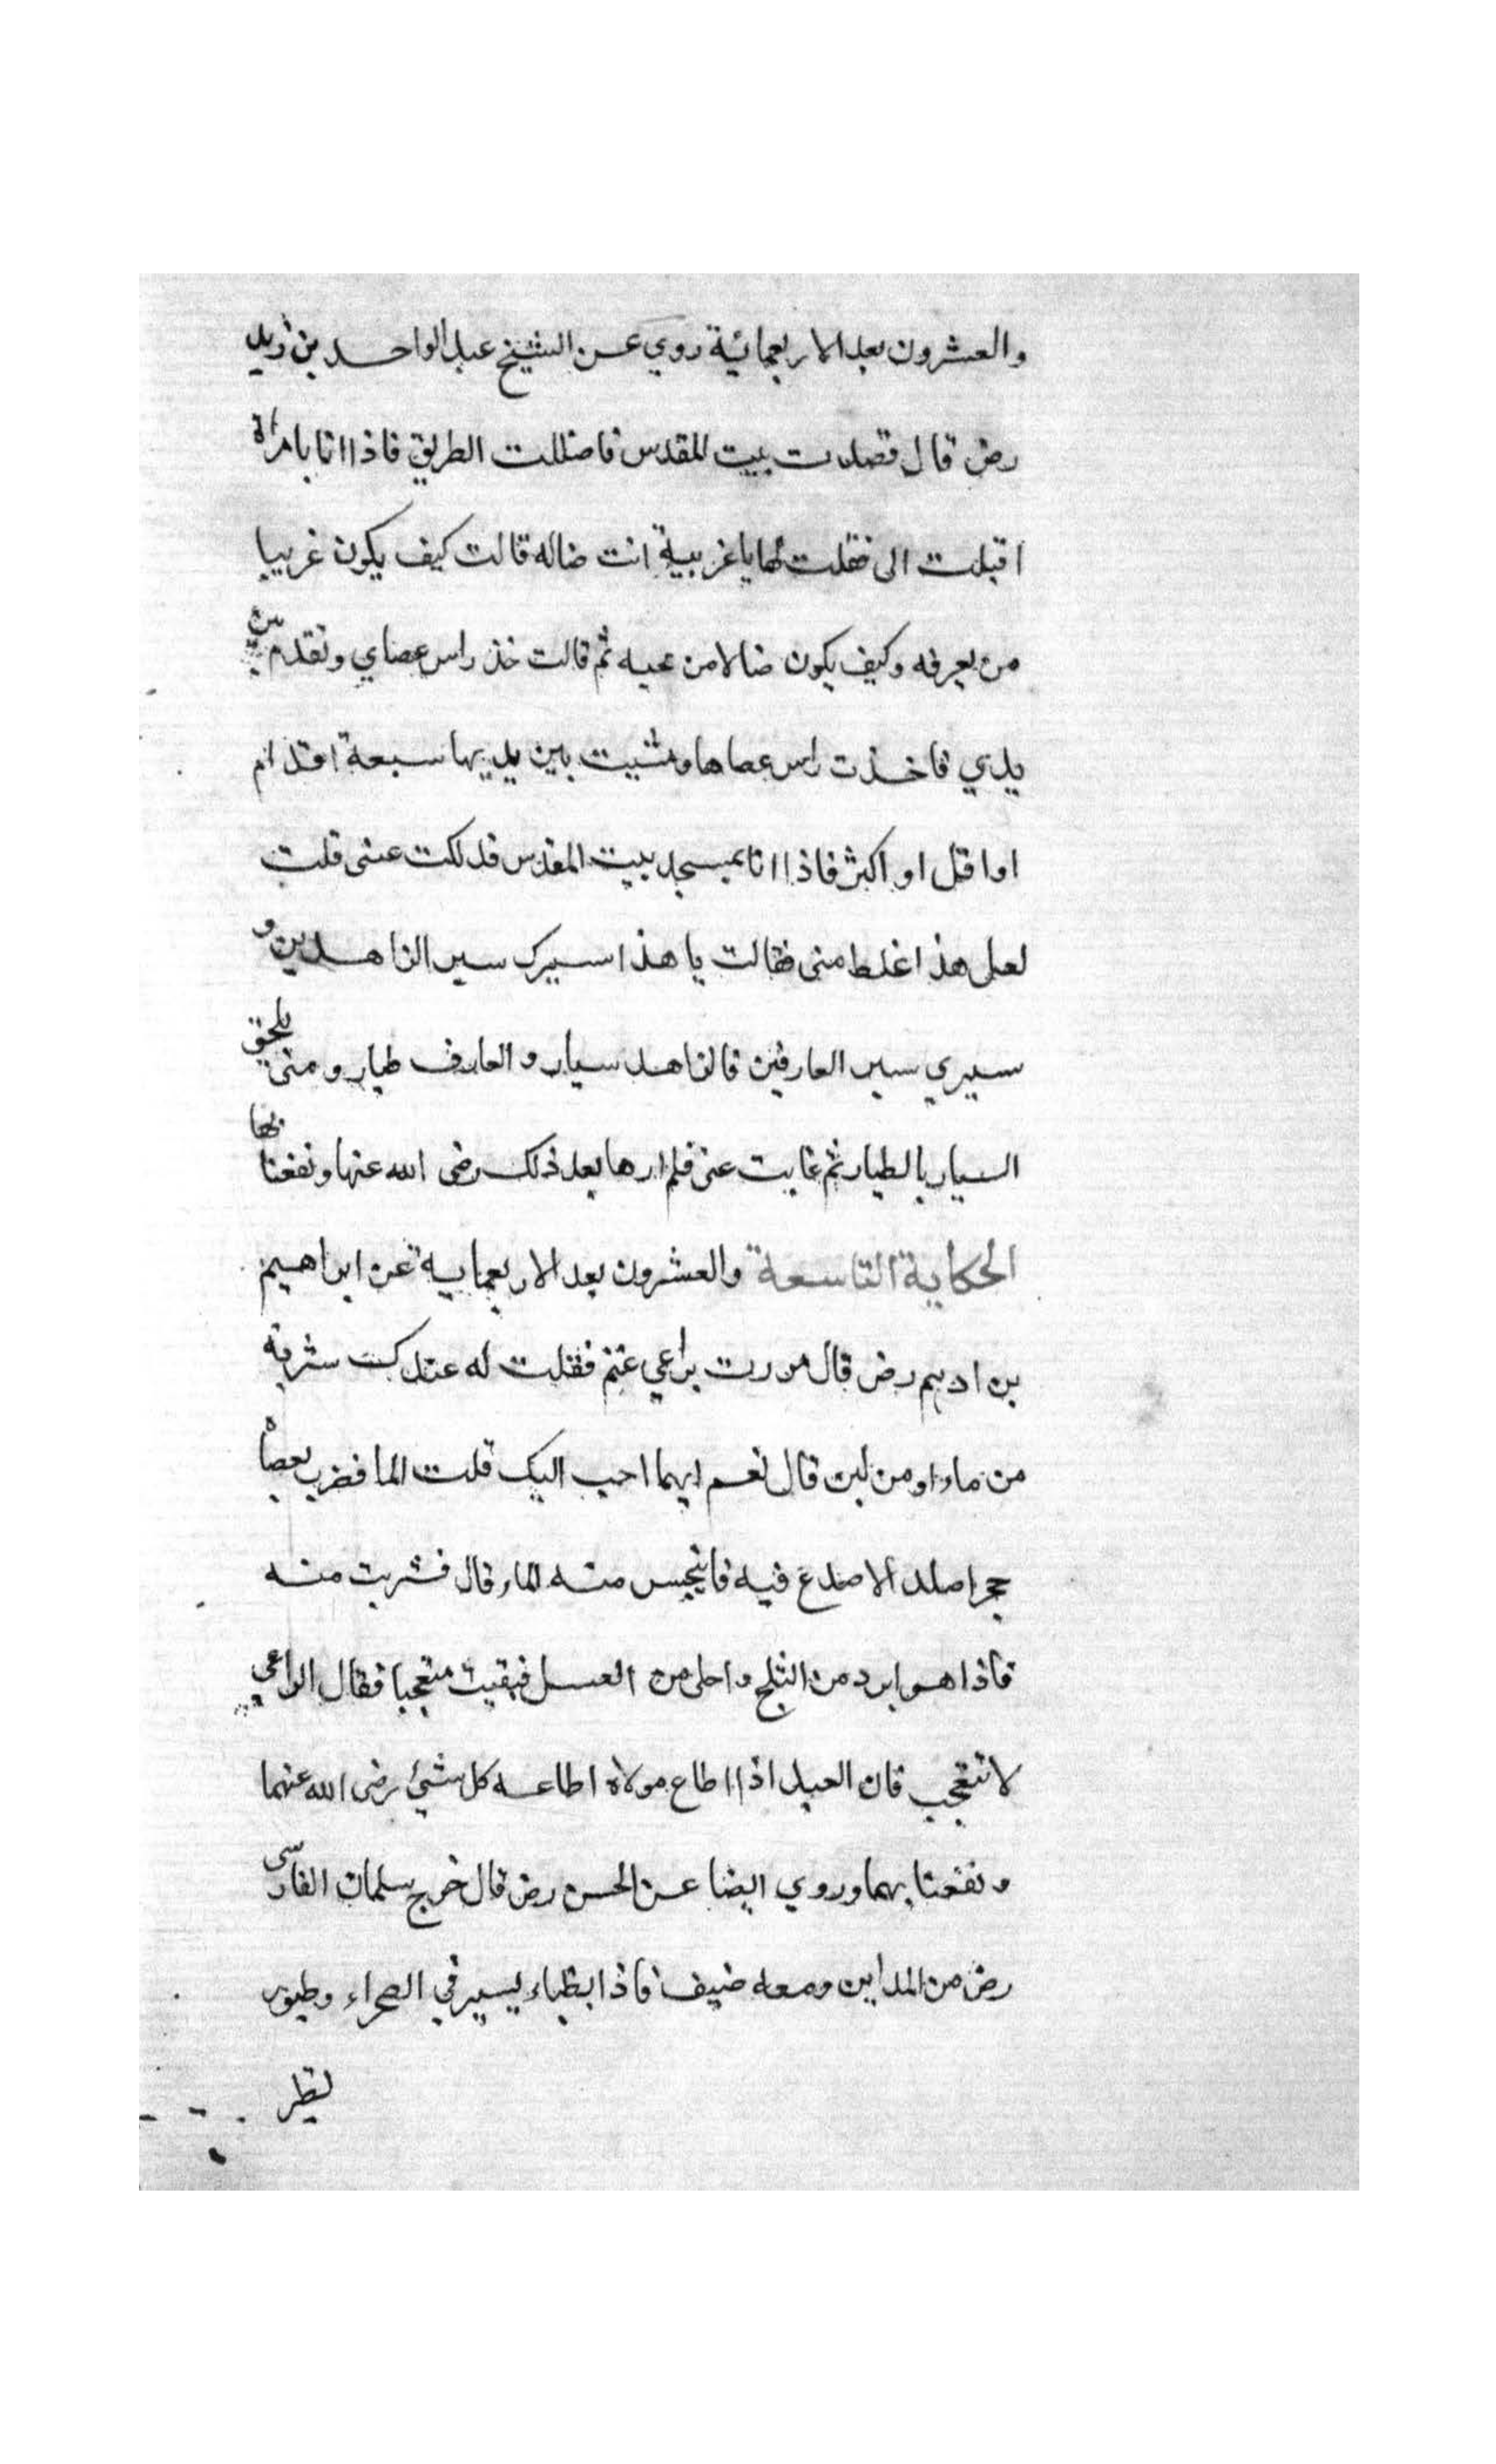 والعشرون بعد الاربعمائية روي عن الشيخ عبد الواحد بن زيد
رض قال قصدت بيت المقدس فاضللت الطريق فاذا انا بامراة
اقبلت الى فقلت لها يا غريبية انت ضاله قالت كيف يكون غريبا
من يعرفه وكيف يكون ضالا من يحبه ثم قالت خذ راس عصاي وتقدم بين
يدي فاخذت راس عصاها ومشيت بين يديها سبعة اقدام
او اقل او اكثر فاذا انا بمسجد بيت المقدس فدلكت عينى قلت
لعل هذا غلط منى فقالت يا هذا سيرك سير الزاهدين و
سيري سير العارفين فالزاهد سيار والعارف طيار ومتى يلحق
السيار بالطيار ثم غابت عنى فلم ارها بعد ذلك رضى الله عنها ونفعنا بها
الحكاية التاسعة والعشرون بعد الاربعماية عن ابراهيم
بن ادهم رض قال مررت براعي غنم فقلت له عندك شربة
من ماء او من لبن قال نعم ايهما احب اليك قلت الما فضرب بعصاه
حجرا صلدا لا صدع فيه فانبجس منه الماء قال فشربت منه
فاذا هو ابرد من الثلج واحلى من العسل فبقيت متعجبا فقال الراعي
لا تتعجب فان العبد اذا اطاع مولاه اطاعه كل شيئ رضى الله عنهما
ونفعنا بهما وروي ايضا عن الحسن رض قال خرج سلمان الفارسى
رض من المداين ومعه ضيف فاذا بظباء يسير في الصحراء وطيور
لطير